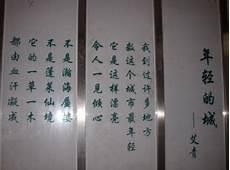 年轻的城
——艾青
我到过许多地方
数这个城市最年轻
它是这样漂亮
令人一见倾心
不是瀚海蜃楼
不是蓬莱仙境
它的一草一木
都由血汗凝成